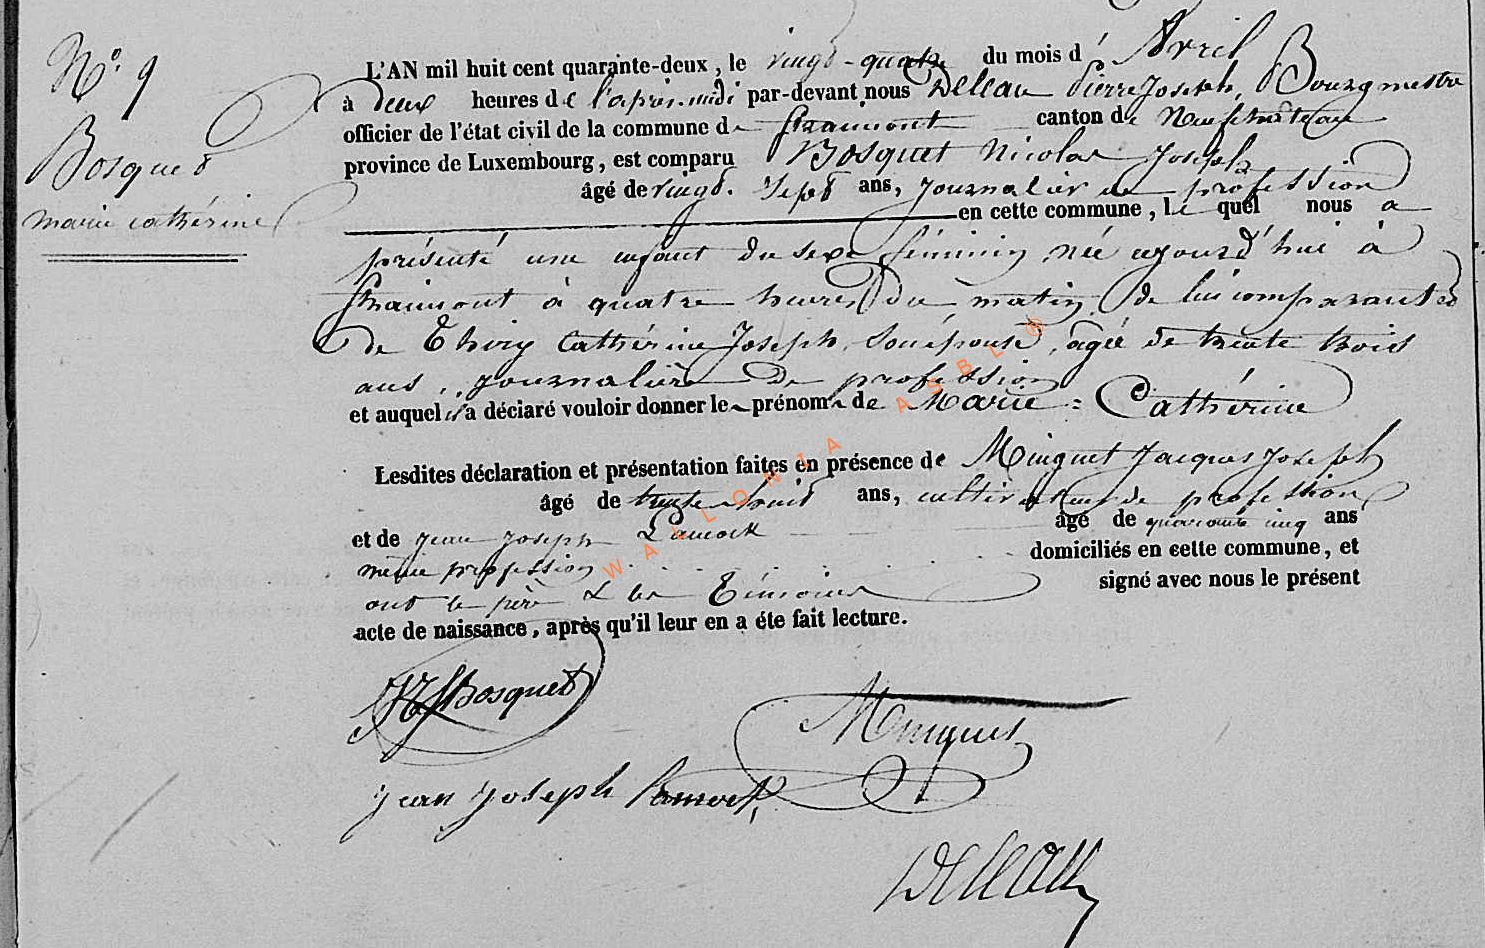 N° 9
Bosquet
marie cathérine
L'AN mil huit cent quarante-deux, le vingt-quatre du mois d' Avril
à deux heures de l'après-midi par-devant nous Delleau Pierre Joseph, Bourgmestre
officier de l'état civil de la commune de Straimont canton de Neufchâteau
province de Luxembourg, est comparu Bosquet Nicolas Joseph
âgé de vingt-sept ans, journalier de profession
en cette commune, le quel nous a
présenté une enfant du sexe féminin, née aujourd'hui à
Straimont à quatre heures du matin de lui comparant et
de Thiry Cathérine Joseph, son épouse, agée de trente trois
ans, journalière de profession
et auquel il a déclaré vouloir donner le prénom de Marie=Cathérine
Lesdites déclaration et présentation faites en présence de Minguet Jacques Joseph
âgé de trente-huit ans, cultivateur de profession
et de Jean Joseph Lamock âgé de quarante cinq ans
même profession domiciliés en cette commune, et
ont le père & les Témoins signé avec nous le présent
acte de naissance, après qu'il leur en a éte fait lecture.
NJBosquet
Minguet
Jean Joseph Lamock,
Delleau
WALLONIA ASBL ®